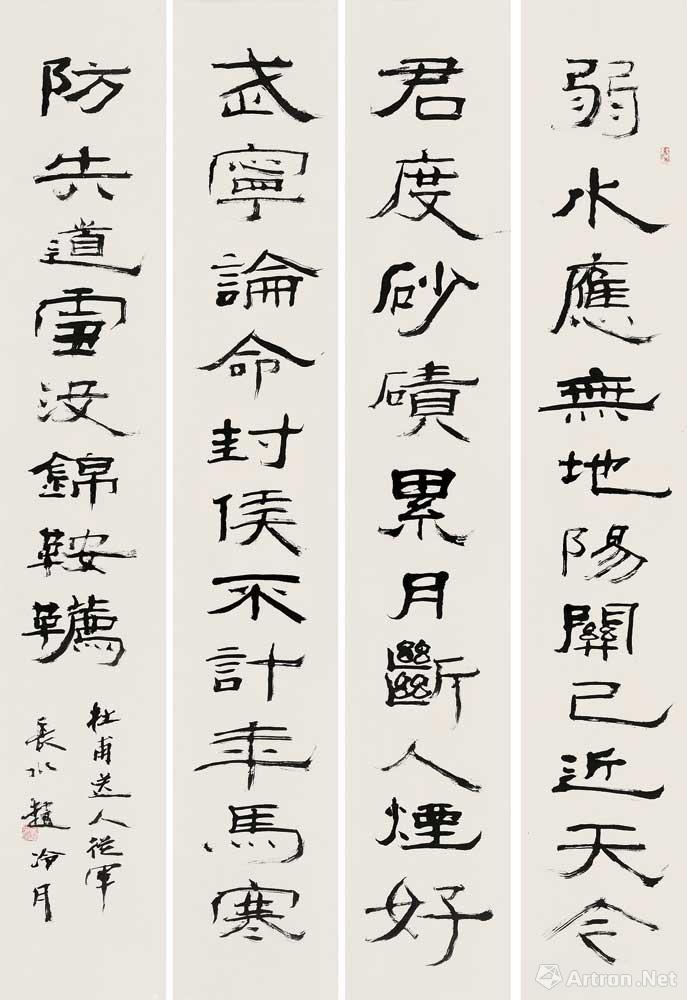 弱水應無地陽關已近天今
君度砂磧累月斷人煙好
武寧論命封侯不計年馬寒
防失道雪沒錦鞍韉
杜甫送人從軍
長水趙冷月
Artron.Net